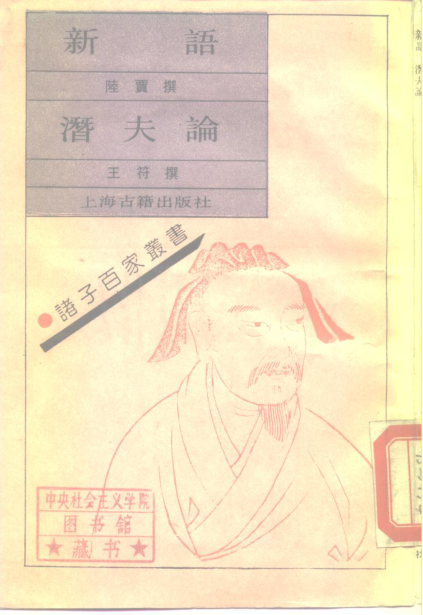 新語
陸賈撰
潛夫論
王符撰
上海古籍出版社
諸子百家叢書
中央社会主义学院
图书馆
★藏书★
新語 潛夫論
社